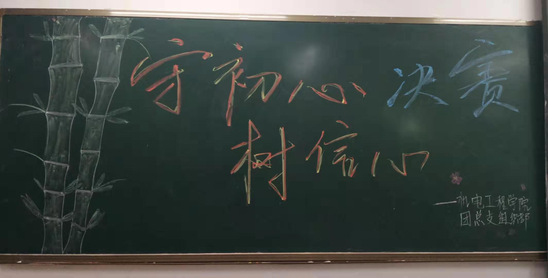 守初心 决赛
树信心
—机电工程学院
团总支组织部